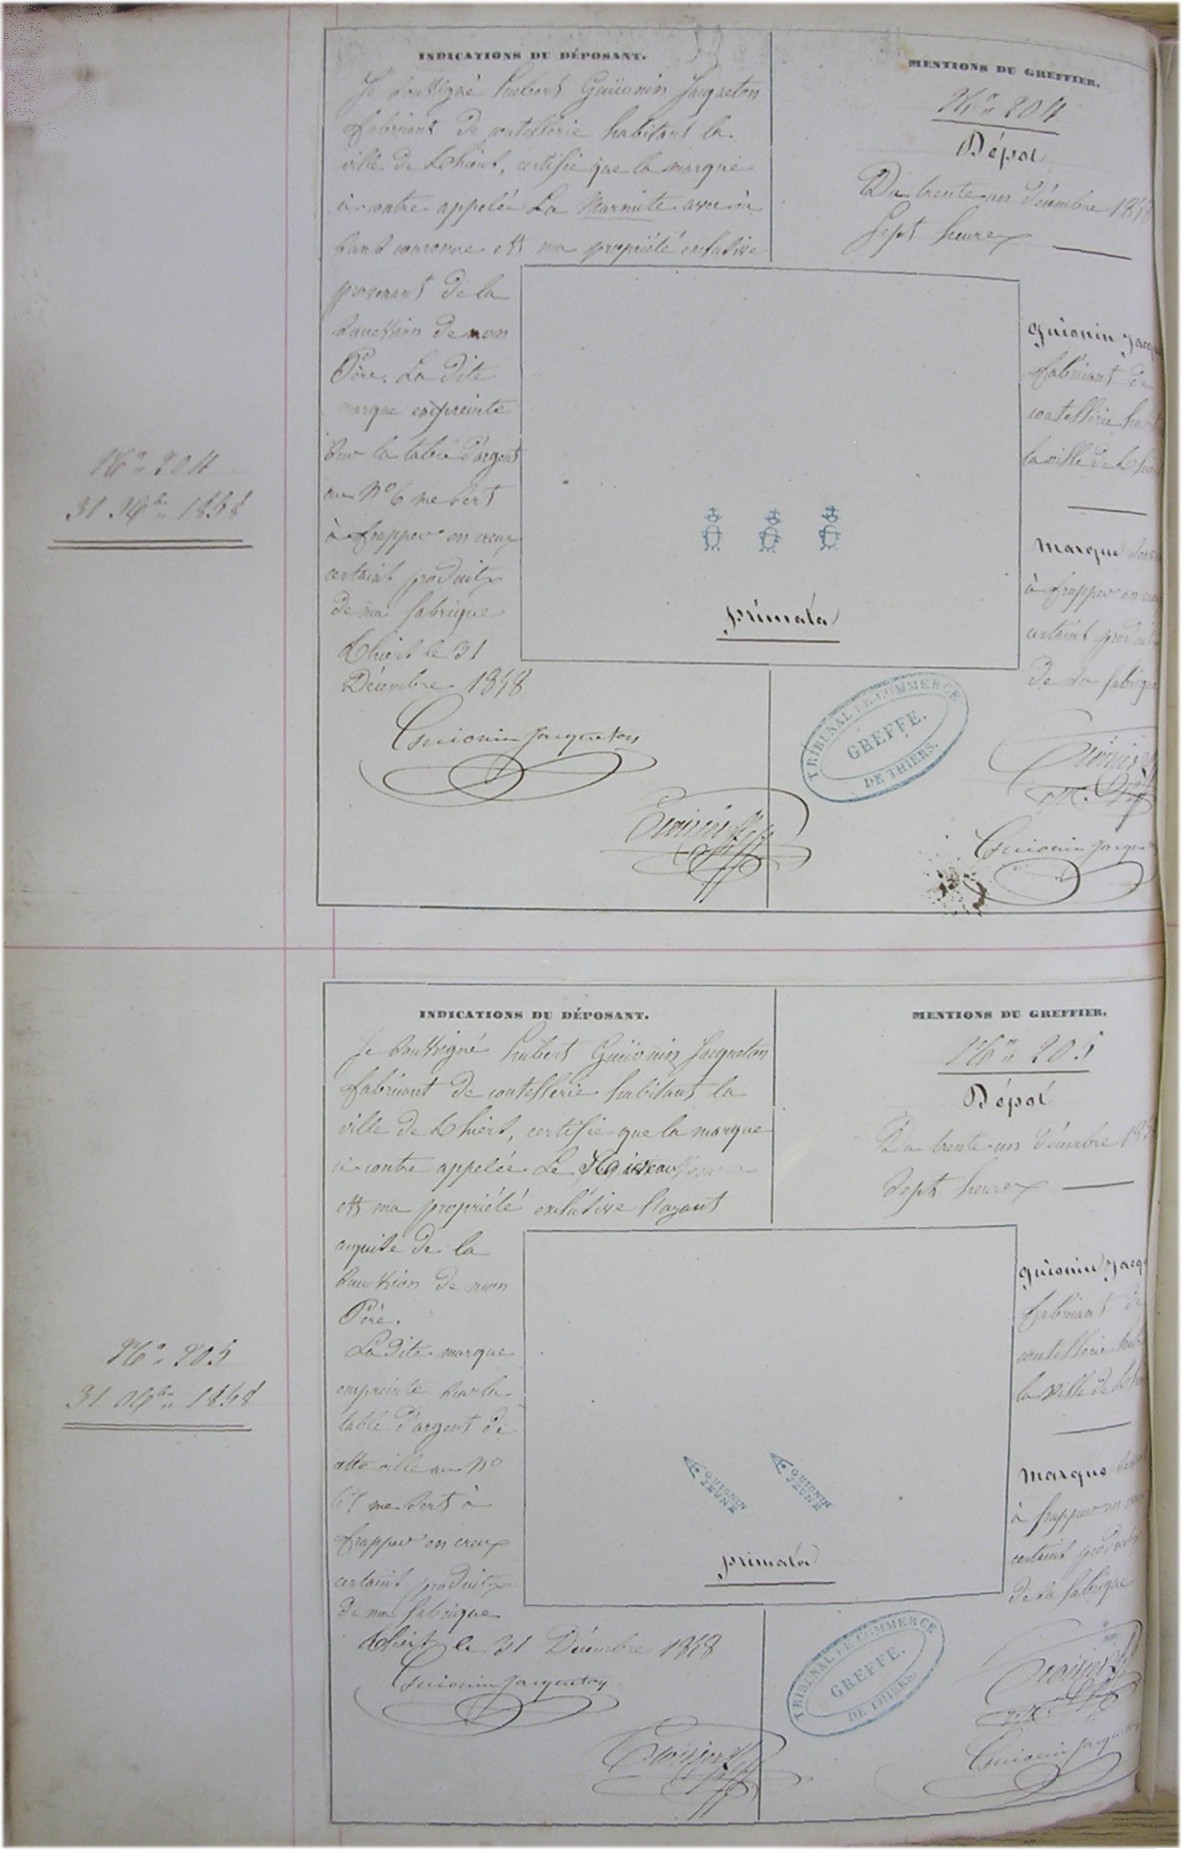 INDICATIONS DU DÉPOSANT.
Je soussigné hubert Guionin Jacqueton
fabricant de coutellerie habitant la
ville de Thiers, certifie que la marque
ci contre appelée La Marmite avec
couronne est ma propriété exclusive
provenant de la
succession de mon
Père. La dite
marque empreinte
sur la table d'argent
au No 6 me sert
à frapper en creux
certains produits
de ma fabrique
Thiers le 31
Décembre 1858
Guionin Jacqueton
MENTIONS DU GREFFIER.
No 204
Dépot
Du trente un Décembre
Sept heures
primata
Guionin
fabricant de
coutellerie
la ville de
marque
à frapper en
certains
de sa fabrique
Guionin
TRIBUNAL DE COMMERCE
GREFFE.
DE THIERS.
No 204
31 Xbre 1858
INDICATIONS DU DÉPOSANT.
Je soussigné hubert Guionin Jacqueton
fabricant de coutellerie habitant la
ville de Thiers, certifie que la marque
ci contre appelée Le
est ma propriété exclusive l'ayant
acquise de la
succession de mon
Père.
La dite marque
empreinte sur la
table d'argent de
cette ville au No
me sert à
frapper en creux
certains produits
de ma fabrique
Thiers le 31 Décembre 1858
Guionin Jacqueton
MENTIONS DU GREFFIER.
No 205
Dépot
Du trente un Décembre
Sept heures
GUIONIN
JEUNE
GUIONIN
JEUNE
primata
Guionin
fabricant de
coutellerie
la ville de
marque
à frapper en
certains produits
de sa fabrique
Guionin
TRIBUNAL DE COMMERCE
GREFFE.
DE THIERS.
No 205
31 Xbre 1858